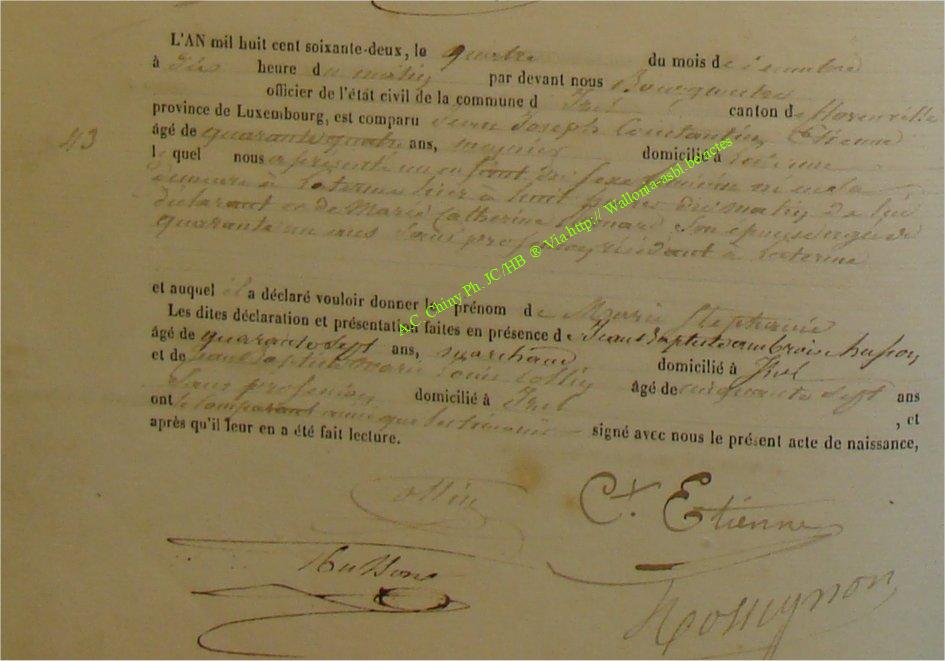 L'AN mil huit cent soixante-deux, le quatre du mois de
à dix heure du matin par devant nous
officier de l'état civil de la commune d Izel canton de Florenville
province de Luxembourg, est comparu Jean Joseph Constantin Etienne
43
âgé de quarante quatre ans, meunier domicilié à
lequel nous a présenté un enfant du sexe féminin né en la
demeure à laterme hier à huit heures du matin de lui
déclarant et de Marie Catherine son épouse agée de
quarante un ans sans profession, résidant à laterme
et auquel il a déclaré vouloir donner le prénom de Marie Stephanie
Les dites déclaration et présentation faites en présence de Jean Baptiste ambroise husson,
âgé de quarante sept ans, marchand domicilié à Izel
et de Jean Baptiste Marie Louis Collin âgé de cinquante sept ans
Sans profession, domicilié à Izel , et
ont le comparant ainsi que les témoins signé avec nous le présent acte de naissance,
après qu'il leur en a été fait lecture.
A.C. Chiny Ph. JC/HB ® Via http:// Wallonia-asbl.be/actes
Collin
Ct. Etienne
Husson
Rossignon